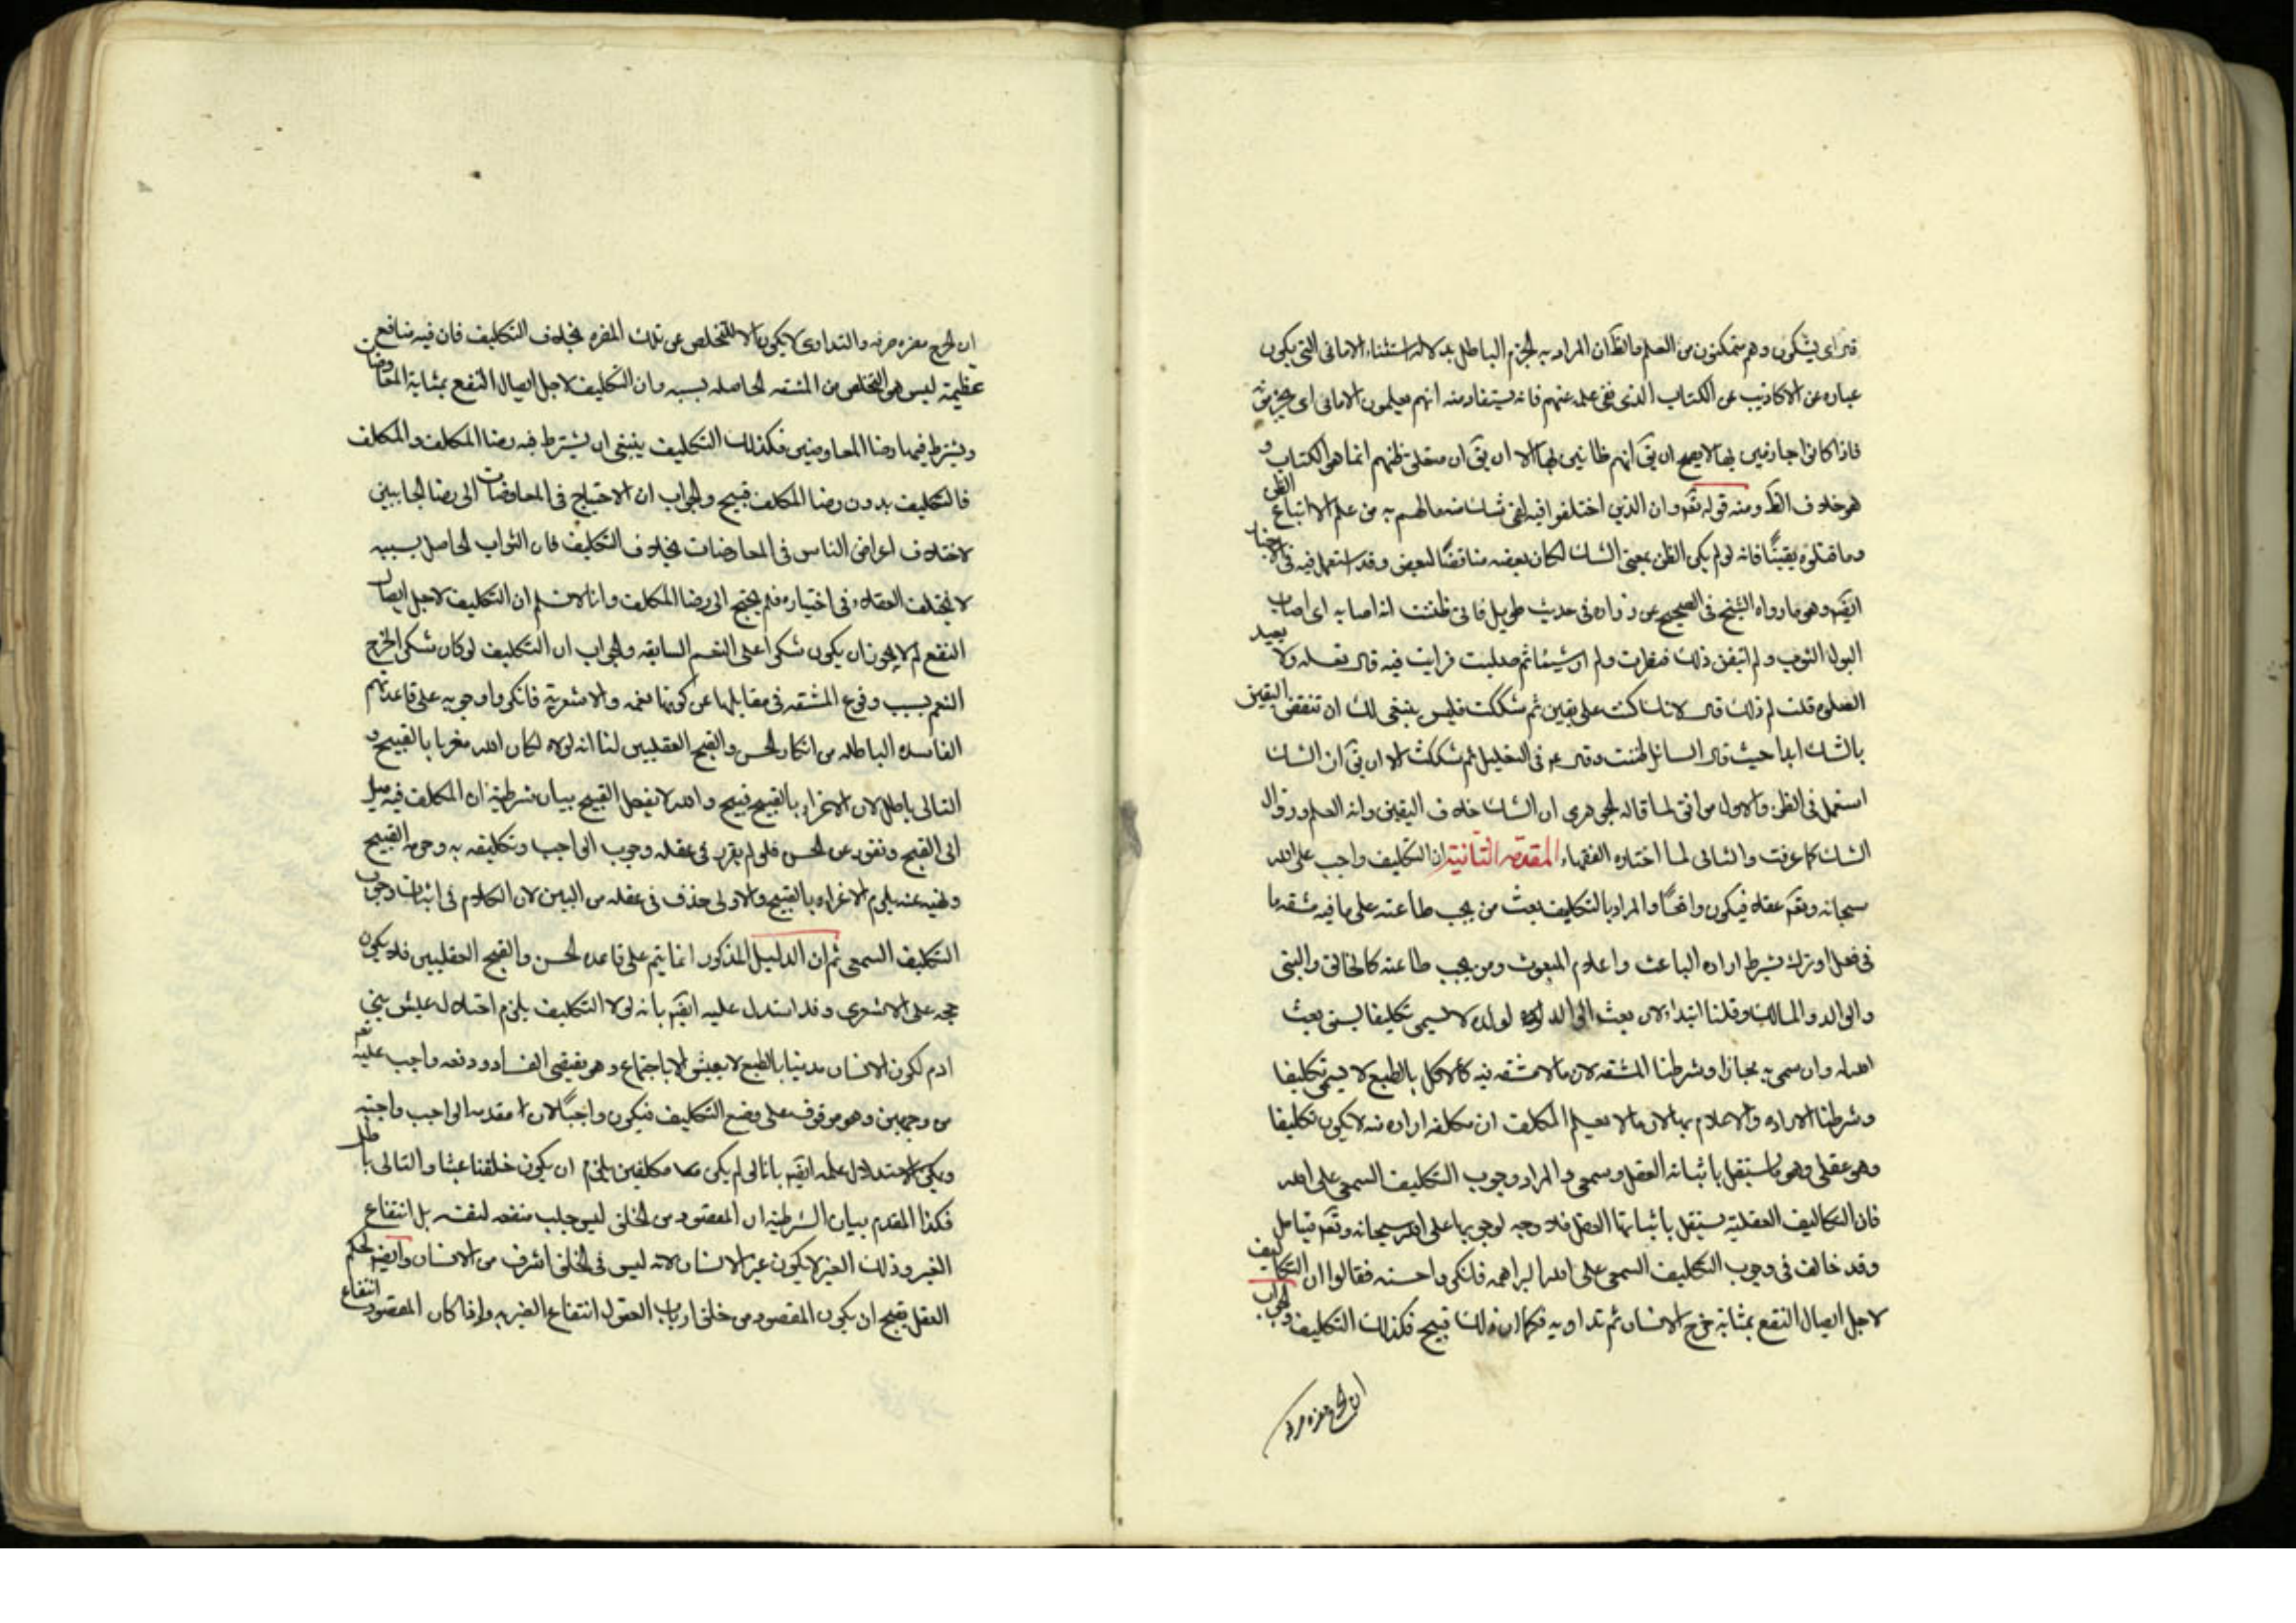 قيل اى يشكون وهم متمكنون من العلم والظ ان المراد به الجزم الباطل بدلالة استثناء الامانى التى يكون
عبارة عن الاكاذيب عن الكتاب الذى نفى علمه عنهم فانه يستفاد منه انهم يعلمون الامانى اى يجزمون
فاذا كانوا جازمين بها لا يصح ان يق انهم ظانين لها الا ان يق ان متعلق ظنهم انما هو الكتاب و
هو خلاف الظ ومنه قوله تع وان الذين اختلفوا فيه لفى شك منه ما لهم به من علم الا اتباع الظن
وما قتلوه يقينًا فانه لو لم يكن الظن بمعنى الشك لكان بعضه مناقضًا لبعض وقد استعمل فيه فى الاخبار
ايضً وهو ما رواه الشيخ فى الصحيح عن زراره فى حديث طويل فان ظننت انه اصابه اى اصاب
البول الثوب ولم اتيقن ذلك فنظرت ولم ار شيئا ثم صليت فرايت فيه قال تغسله ولا يعيد
الصلوة قلت لم ذلك قال لانك كنت على يقين ثم شككت فليس ينبغى لك ان تنقض اليقين
بالشك ابدا حيث قال السائل ظننت وقال ع فى التعليل ثم شككت الا ان يق ان الشك
استعمل فى الظن والاول موافق لما قاله الجوهرى ان الشك خلاف اليقين وانه العلم وزوال
الشك كما عرفت والثانى لما اختاره الفقهاء المقدمة الثانية ان التكليف واجب على الله
سبحانه وتع عقلا فيكون واقعًا والمراد بالتكليف بعث من يجب طاعته على ما فيه مشقه ما
فى فعل او ترك بشرط اراده الباعث واعلام المبعوث ومن يجب طاعته كالخالق والنبى
والوالد والمالك وقلنا ابتداء لان بعث الوالد لولده لا يسمى تكليفا لسبق بعث
الله وان سمى به مجازا وشرطنا المشقه لان ما لا مشقه فيه كالاكل بالطبع لا يسمى تكليفا
وشرطنا الاراده والاعلام بها لان ما لا يعلم المكلف ان مكلفه اراده منه لا يكون تكليفا
وهو عقلى وهو ما يستقل باثباته العقل وسمعى والمراد وجوب التكليف السمعى على الله
فان التكاليف العقلية يستقل باثباتها العقل فلا وجه لوجوبها على الله سبحانه وتع فتامل
وقد خالف فى وجوب التكليف السمعى على الله البراهمه فانكروا حسنه فقالوا ان التكليف
لاجل ايصال النفع بمثابة جرح الانسان ثم تداويه فكما ان ذلك قبيح فكذلك التكليف والجواب
ان الجرح مضره صرفه
ان الجرح مضره صرفه والتداوى لا يكون الا للتخلص عن تلك المضره بخلاف التكليف فان فيه منافع
عظيمة ليس هى التخلص من المشقه الحاصله بسببه وان التكليف لاجل ايصال النفع بمثابة المعاوضات
ويشترط فيها رضا المعاوضين فكذلك التكليف ينبغى ان يشترط فيه رضا المكلف والمكلف
فالتكليف بدون رضا المكلف قبيح والجواب ان الاحتياج فى المعاوضات الى رضا الجانبين
لاختلاف اعراض الناس فى المعاوضات بخلاف التكليف فان الثواب الحاصل بسببه
لا يختلف العقلاء فى اختياره فلم يحتج الى رضا المكلف وانا لا نسلم ان التكليف لاجل ايصال
النفع لم لا يجوز ان يكون شكرا على النعم السابقه والجواب ان التكليف لو كان شكرا لخرج
النعم بسبب وقوع المشقه فى مقابلها عن كونها نعمه والاشعرية فانكروا وجوبه على قاعدتهم
الفاسده الباطله من انكار الحسن والقبح العقليين لنا انه لولاه لكان الله مغريا بالقبيح و
التالى باطل لان الاغراء بالقبيح قبيح والله لا يفعل القبيح بيان شرطية ان المكلف فيه ميل
الى القبيح ونفور عن الحسن فلو لم يقرر فى عقله وجوب الواجب وتكليفه به وحرمة القبيح
ونهيه عنه يلزم الاغراء بالقبيح والاولى حذف فى عقله من البين لان الكلام فى اثبات وجوب
التكليف السمعى ثم ان الدليل المذكور انما يتم على قاعده الحسن والقبح العقليين فلا يكون
حجه على الاشعرى وقد استدل عليه ايضً بانه لولا التكليف يلزم اختلال عيش بنى
ادم لكون الانسان مدنيا بالطبع لا يعيش الا باجتماع وهو يقتضى الفساد ودفعه واجب عليه تع
من وجهين وهو موقوف على وضع التكليف فيكون واجبًا لان مقدمه الواجب واجبة
ويمكن الاستدلال عليه ايضً بانا لو لم يكن مكلفين يلزم ان يكون خلقنا عبثا والتالى باطل
فكذا المقدم بيان الشرطية ان المقصود من الخلق ليس جلب منفعه لنفسه بل انتفاع
الغير وذلك الغير لا يكون غير الانسان لانه ليس فى الخلق اشرف من الانسان وايضً لحكم
العقل بقبح ان يكون المقصود من خلق ارباب العقول انتفاع الغير به واذا كان المقصود انتفاع